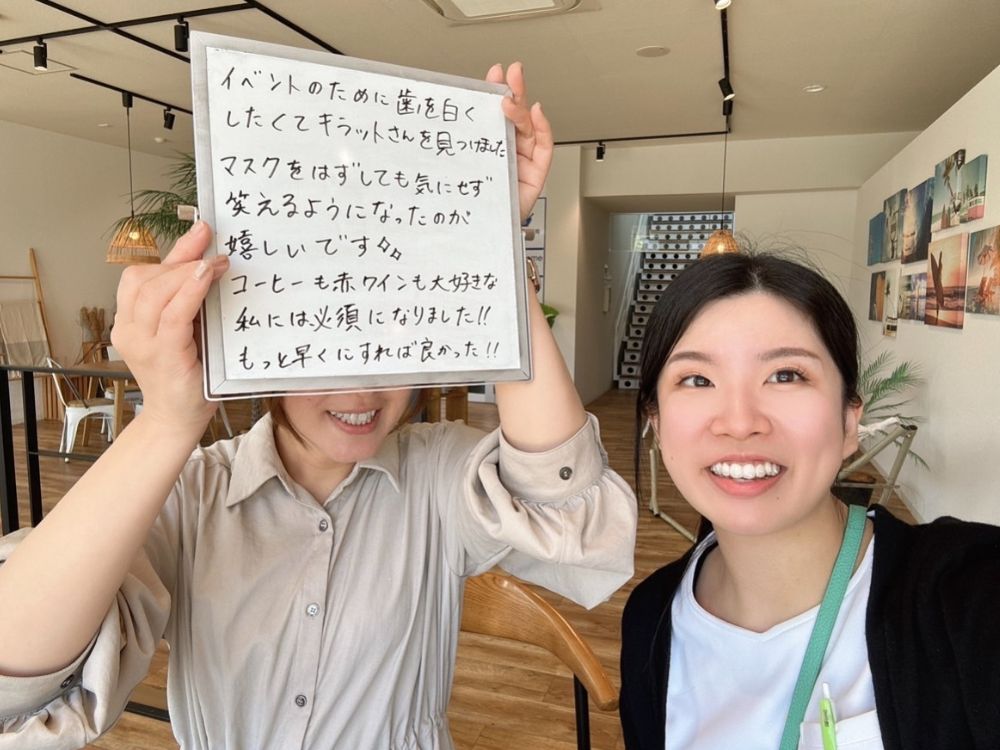 イベントのために歯を白く
したくてキラットさんを見つけました
マスクをはずしても気にせず
笑えるようになったのが
嬉しいです✨
コーヒーも赤ワインも大好きな
私には必須になりました!!
もっと早くにすれば良かった!!